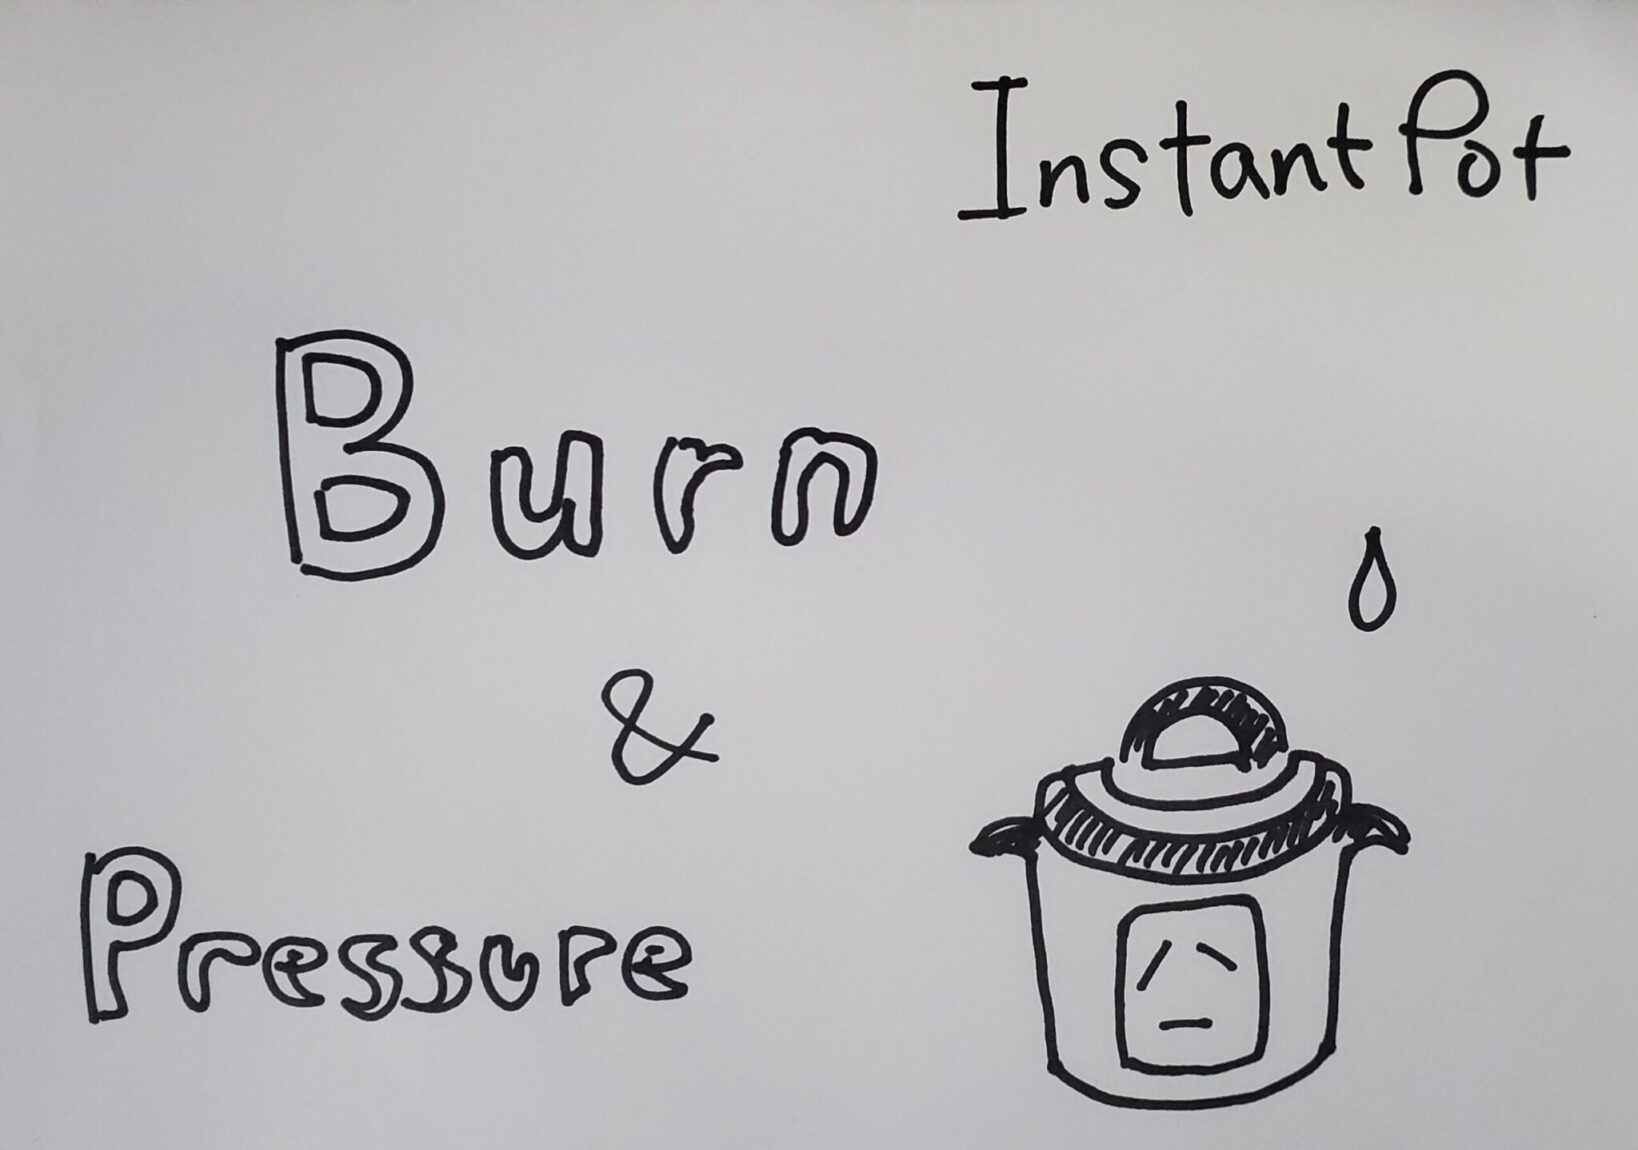 Instant Pot
Burn
&
Pressure